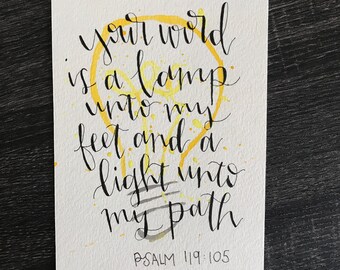 your word
is a lamp
unto my
feet and a
light unto
my path
PSALM 119:105